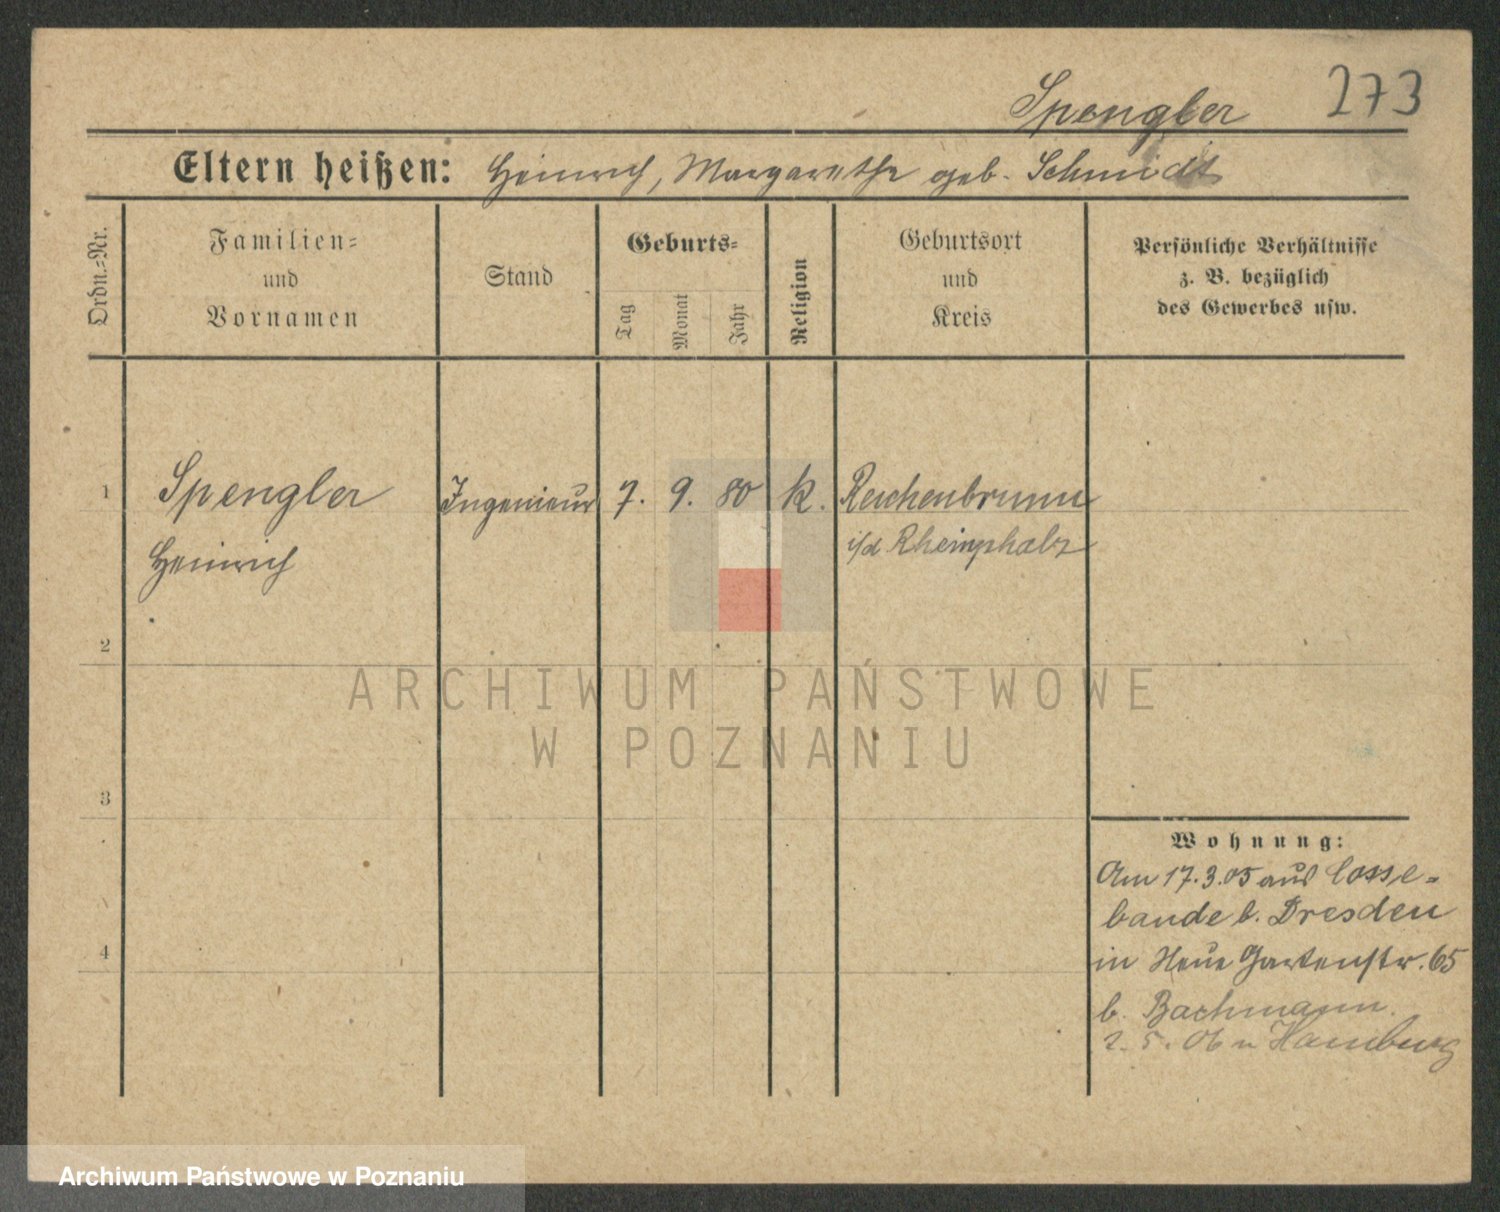 273
Spengler
Eltern heißen: Heinrich, Margarethe geb. Schmidt
Ordn.-Nr.
Familien-
und
Vornamen
Stand
Geburts-
Tag
Monat
Jahr
Religion
Geburtsort
und
Kreis
Persönliche Verhältnisse
z. B. bezüglich
des Gewerbes usw.
1 Spengler Ingenieur 7. 9. 80 k. Reichenbrunn
Heinrich i/d Rheinphalz
2
3
4
Wohnung:
Am 17.3.05 aus Cosse-
baude b. Dresden
in Neue Gartenstr. 65
b. Bachmann.
2. 5. 06 n Hamburg
ARCHIWUM PAŃSTWOWE
W POZNANIU
Archiwum Państwowe w Poznaniu